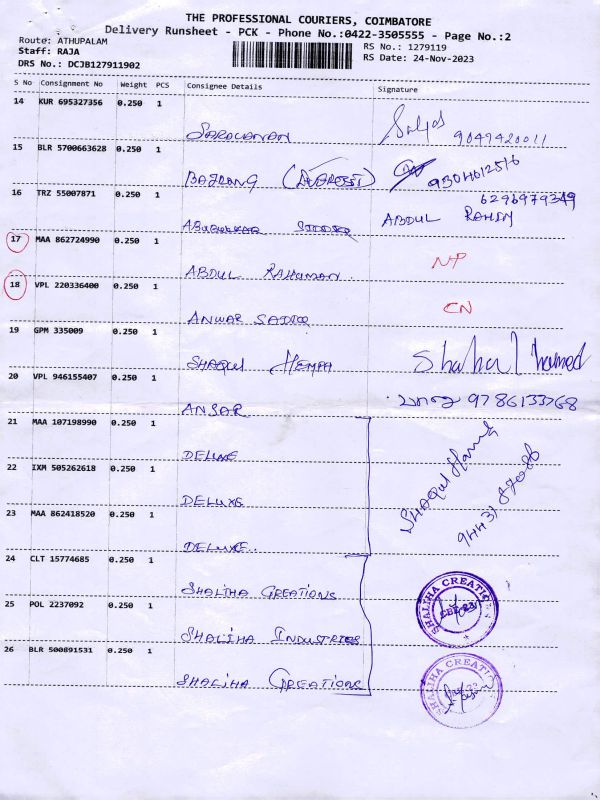 THE PROFESSIONAL COURIERS, COIMBATORE
Delivery Runsheet - PCK - Phone No.:0422-3505555 - Page No.:2
Route: ATHUPALAM
Staff: RAJA
DRS No.: DCJB127911902
RS No.: 1279119
RS Date: 24-Nov-2023
S No Consignment No Weight PCS Consignee Details Signature
14 KUR 695327356 0.250 1
SARAVANAN 9049420011
15 BLR 5700663628 0.250 1
BAJRANG 9304612516
16 TRZ 55007871 0.250 1 6296979349
ABUBAKKAR SIDDIQ ABDUL RAHIM
17 MAA 862724990 0.250 1
ABDUL RAHUMAN NP
18 VPL 220336400 0.250 1
ANWAR SADIQ CN
19 GPM 335009 0.250 1
SHAQUL HEMPA Shahul hamed
20 VPL 946155407 0.250 1
ANSAR 9786133768
21 MAA 107198990 0.250 1
DELUXE
22 IXM 505262618 0.250 1
DELUXE
SHAQUL Hamid
23 MAA 862418520 0.250 1
DELUXE
24 CLT 15774685 0.250 1
SHALIHA CREATIONS
SHALIHA CREATION
CBE-23
25 POL 2237092 0.250 1
SHALIHA INDUSTRIES
26 BLR 500891531 0.250 1
SHALIHA CREATIONS
SHALIHA CREATION